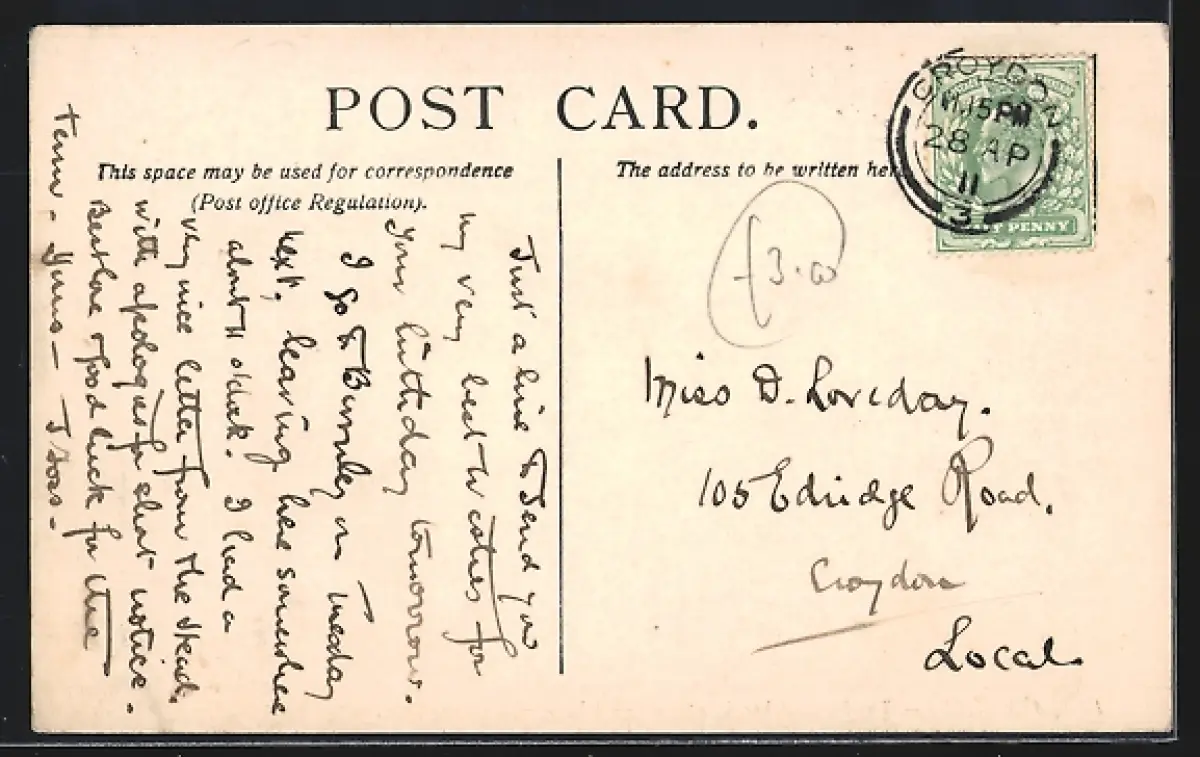 POST CARD.
This space may be used for correspondence
(Post office Regulation).
The address to be written here
CROYDON
15 PM
28 AP
11
3
HALF PENNY
£3.00
Miss D. Loveday.
105 Edridge Road.
Croydon
Local.
Just a line to send you
my very best wishes for
your birthday tomorrow.
I go to Burnley on Tuesday
next, leaving here somewhere
about 11 o'clock. I had a
very nice letter from the Head.
with apologies for short notice.
Best love & good luck for the
Term - Yours -